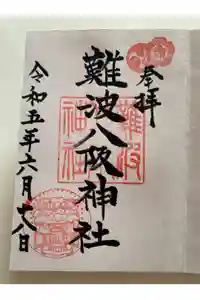 奉拝
難波八阪神社
令和五年六月十八日